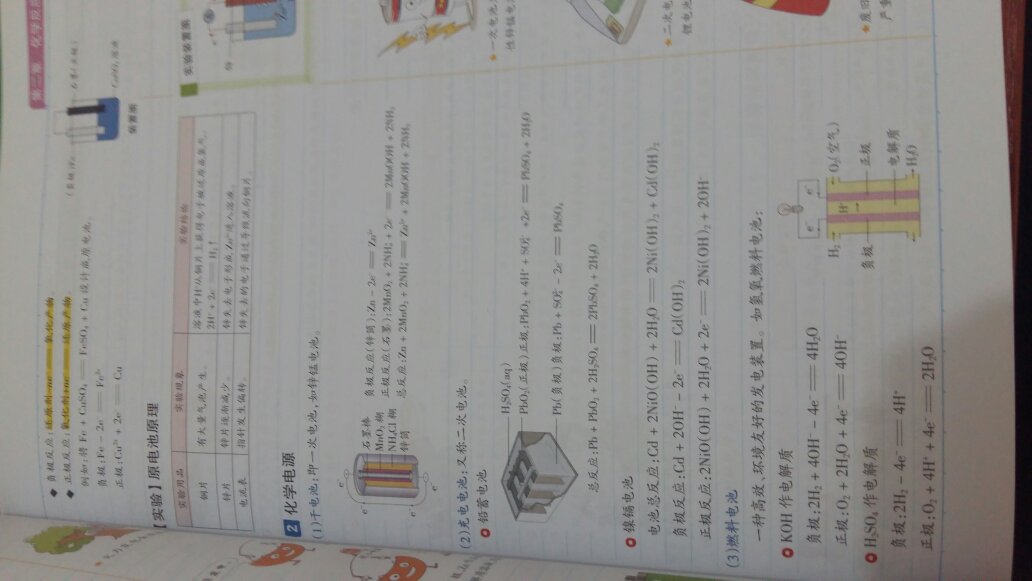 第二章 化学反应
◆ 负极反应:还原剂-ne⁻══氧化产物。
◆ 正极反应:氧化剂+ne⁻══还原产物。
例如:将 Fe + CuSO₄ ══ FeSO₄ + Cu 设计成原电池。
负极:Fe - 2e⁻ ══ Fe²⁺
正极:Cu²⁺ + 2e⁻ ══ Cu
CuSO₄溶液
装置图
【实验】原电池原理
实验用品 实验现象 实验结论
铜片 有大量气泡产生。 溶液中H⁺从铜片上获得电子被还原成氢气。
2H⁺ + 2e⁻ ══ H₂↑
锌片 锌片逐渐减少。 锌失去电子形成Zn²⁺进入溶液。
电流表 指针发生偏转。 锌失去的电子通过导线流向铜片
实验装置图
2 化学电源
(1)干电池:即一次电池,如锌锰电池。
石墨棒
MnO₂糊
NH₄Cl糊
锌筒
e⁻
e⁻
负极反应(锌筒):Zn - 2e⁻ ══ Zn²⁺
正极反应(石墨):2MnO₂ + 2NH₄⁺ + 2e⁻ ══ 2MnOOH + 2NH₃
总反应:Zn + 2MnO₂ + 2NH₄⁺ ══ Zn²⁺ + 2MnOOH + 2NH₃
★一次电池
性锌锰电
(2)充电电池:又称二次电池。
铅蓄电池
H₂SO₄(aq)
PbO₂(正极)正极:PbO₂ + 4H⁺ + SO₄²⁻ +2e⁻ ══ PbSO₄ + 2H₂O
Pb(负极)负极:Pb + SO₄²⁻ - 2e⁻ ══ PbSO₄
总反应:Pb + PbO₂ + 2H₂SO₄ ══ 2PbSO₄ + 2H₂O
镍镉电池
电池总反应:Cd + 2NiO(OH) + 2H₂O ══ 2Ni(OH)₂ + Cd(OH)₂
负极反应:Cd + 2OH⁻ - 2e⁻ ══ Cd(OH)₂
正极反应:2NiO(OH) + 2H₂O + 2e⁻ ══ 2Ni(OH)₂ + 2OH⁻
★二次电
锂电池
(3)燃料电池
一种高效、环境友好的发电装置。如氢氧燃料电池:
KOH 作电解质
负极:2H₂ + 4OH⁻ - 4e⁻ ══ 4H₂O
正极:O₂ + 2H₂O + 4e⁻ ══ 4OH⁻
H₂SO₄作电解质
负极:2H₂ - 4e⁻ ══ 4H⁺
正极:O₂ + 4H⁺ + 4e⁻ ══ 2H₂O
e⁻
e⁻
H₂
H⁺
O₂(空气)
负极
正极
电解质
H₂O
★废旧
严重